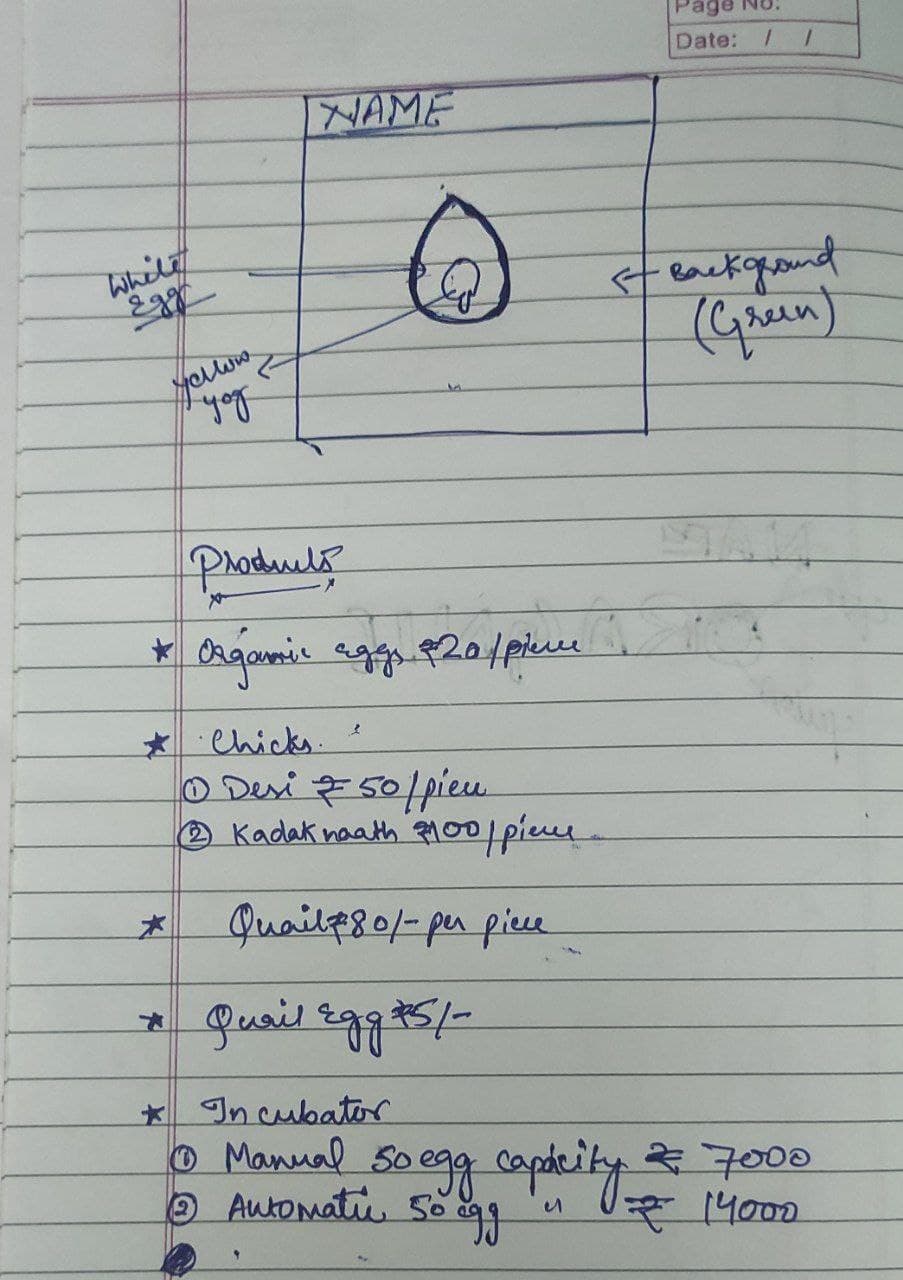 Page No.
Date: / /
NAME
White
Egg
Background
(Green)
yellow
yog
Products
★ Organic eggs ₹20/piece
★ Chicks.
① Desi ₹ 50/piece
② Kadaknaath ₹100/piece
★ Quail ₹80/- per piece
★ Quail Egg ₹5/-
★ Incubator
① Manual 50 egg capacity ₹ 7000
② Automatic 50 egg " ₹ 14000